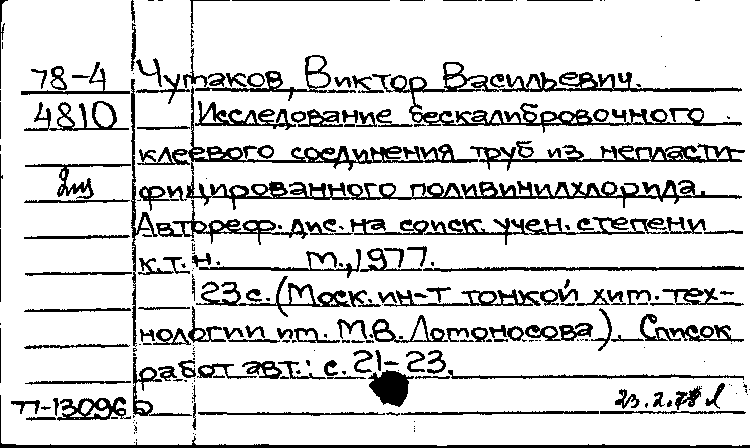 78-4 Чумаков, Виктор Васильевич.
4810 Исследование бескалибровочного
клеевого соединения труб из непласти-
фицированного поливинилхлорида.
Автореф. дис. на соиск. учен. степени
к.т.н. М., 1977.
23 с. (Моск. ин-т тонкой хим. тех-
нологии им. М.В. Ломоносова). Список
работ авт.: с. 21-23.
77-13096 23.2.78